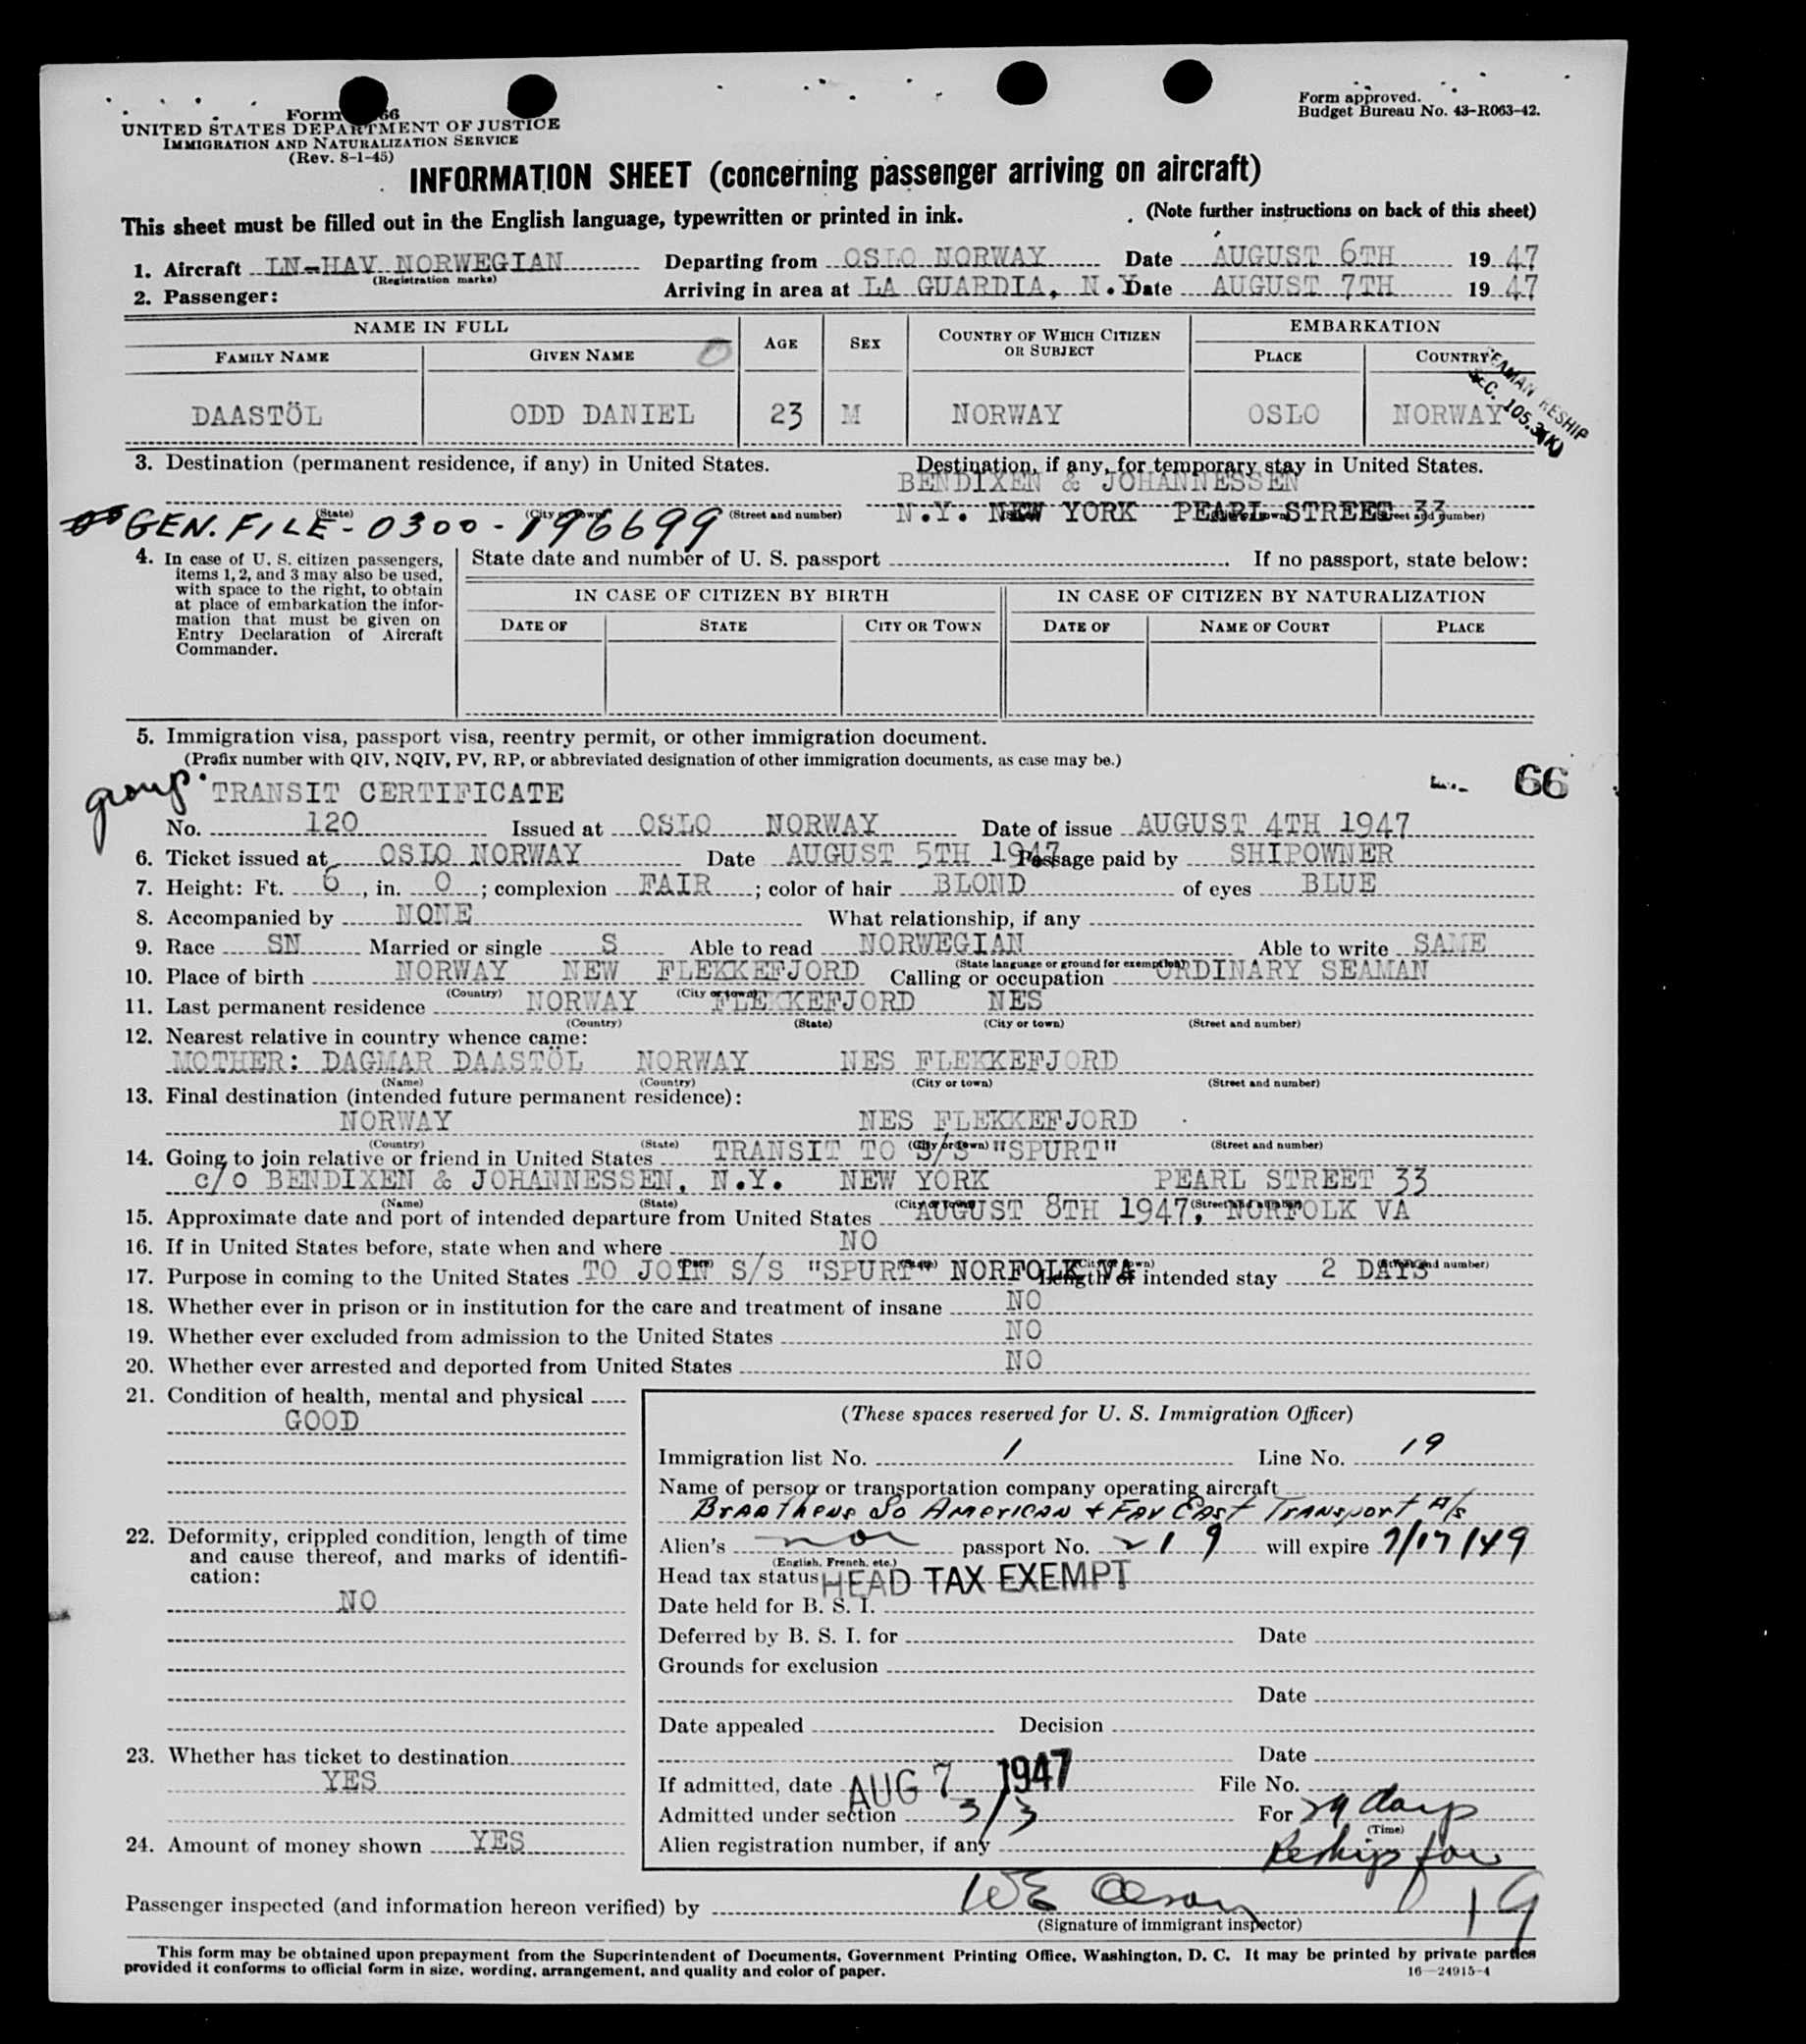 Form 66
UNITED STATES DEPARTMENT OF JUSTICE
IMMIGRATION AND NATURALIZATION SERVICE
(Rev. 8-1-45)
Form approved.
Budget Bureau No. 43-R063-42.
INFORMATION SHEET (concerning passenger arriving on aircraft)
This sheet must be filled out in the English language, typewritten or printed in ink. (Note further instructions on back of this sheet)
1. Aircraft LN-HAV NORWEGIAN Departing from OSLO NORWAY Date AUGUST 6TH 1947
(Registration marks)
2. Passenger: Arriving in area at LA GUARDIA, N.Y. Date AUGUST 7TH 1947
NAME IN FULL AGE SEX COUNTRY OF WHICH CITIZEN OR SUBJECT EMBARKATION
FAMILY NAME GIVEN NAME PLACE COUNTRY
DAASTÖL ODD DANIEL 23 M NORWAY OSLO NORWAY
SEAMAN RESHIP
SEC. 105.3(K)
3. Destination (permanent residence, if any) in United States. Destination, if any, for temporary stay in United States.
BENDIXEN & JOHANNESSEN
N.Y. NEW YORK PEARL STREET 33
(State) (City or town) (Street and number)
GEN. FILE - 0300 - 196699
4. In case of U. S. citizen passengers, items 1, 2, and 3 may also be used, with space to the right, to obtain at place of embarkation the information that must be given on Entry Declaration of Aircraft Commander.
State date and number of U. S. passport If no passport, state below:
IN CASE OF CITIZEN BY BIRTH IN CASE OF CITIZEN BY NATURALIZATION
DATE OF STATE CITY OR TOWN DATE OF NAME OF COURT PLACE
5. Immigration visa, passport visa, reentry permit, or other immigration document.
(Prefix number with QIV, NQIV, PV, RP, or abbreviated designation of other immigration documents, as case may be.)
group TRANSIT CERTIFICATE 66
No. 120 Issued at OSLO NORWAY Date of issue AUGUST 4TH 1947
6. Ticket issued at OSLO NORWAY Date AUGUST 5TH 1947 Passage paid by SHIPOWNER
7. Height: Ft. 6, in. 0; complexion FAIR; color of hair BLOND of eyes BLUE
8. Accompanied by NONE What relationship, if any
9. Race SN Married or single S Able to read NORWEGIAN Able to write SAME
(State language or ground for exemption)
10. Place of birth NORWAY NEW FLEKKEFJORD Calling or occupation ORDINARY SEAMAN
(Country) (City or town)
11. Last permanent residence NORWAY FLEKKEFJORD NES
(Country) (State) (City or town) (Street and number)
12. Nearest relative in country whence came:
MOTHER: DAGMAR DAASTÖL NORWAY NES FLEKKEFJORD
(Name) (Country) (City or town) (Street and number)
13. Final destination (intended future permanent residence):
NORWAY NES FLEKKEFJORD
(Country) (State) (City or town) (Street and number)
14. Going to join relative or friend in United States TRANSIT TO S/S "SPURT"
c/o BENDIXEN & JOHANNESSEN, N.Y. NEW YORK PEARL STREET 33
(Name) (State) (City or town) (Street and number)
15. Approximate date and port of intended departure from United States AUGUST 8TH 1947, NORFOLK VA
16. If in United States before, state when and where NO
17. Purpose in coming to the United States TO JOIN S/S "SPURT" NORFOLK VA Length of intended stay 2 DAYS
18. Whether ever in prison or in institution for the care and treatment of insane NO
19. Whether ever excluded from admission to the United States NO
20. Whether ever arrested and deported from United States NO
21. Condition of health, mental and physical
GOOD
22. Deformity, crippled condition, length of time and cause thereof, and marks of identification:
NO
23. Whether has ticket to destination
YES
24. Amount of money shown YES
(These spaces reserved for U. S. Immigration Officer)
Immigration list No. 1 Line No. 19
Name of person or transportation company operating aircraft
Braathens So American & Far East Transport A/S
Alien's nor passport No. 219 will expire 7/17/49
(English, French, etc.)
Head tax status HEAD TAX EXEMPT
Date held for B. S. I.
Deferred by B. S. I. for Date
Grounds for exclusion
Date
Date appealed Decision
Date
If admitted, date AUG 7 1947 File No.
Admitted under section 3/3 For 29 days
(Time)
Alien registration number, if any Reship for
Passenger inspected (and information hereon verified) by WE Olson 19
(Signature of immigrant inspector)
This form may be obtained upon prepayment from the Superintendent of Documents, Government Printing Office, Washington, D. C. It may be printed by private parties
provided it conforms to official form in size, wording, arrangement, and quality and color of paper. 16—24915-4